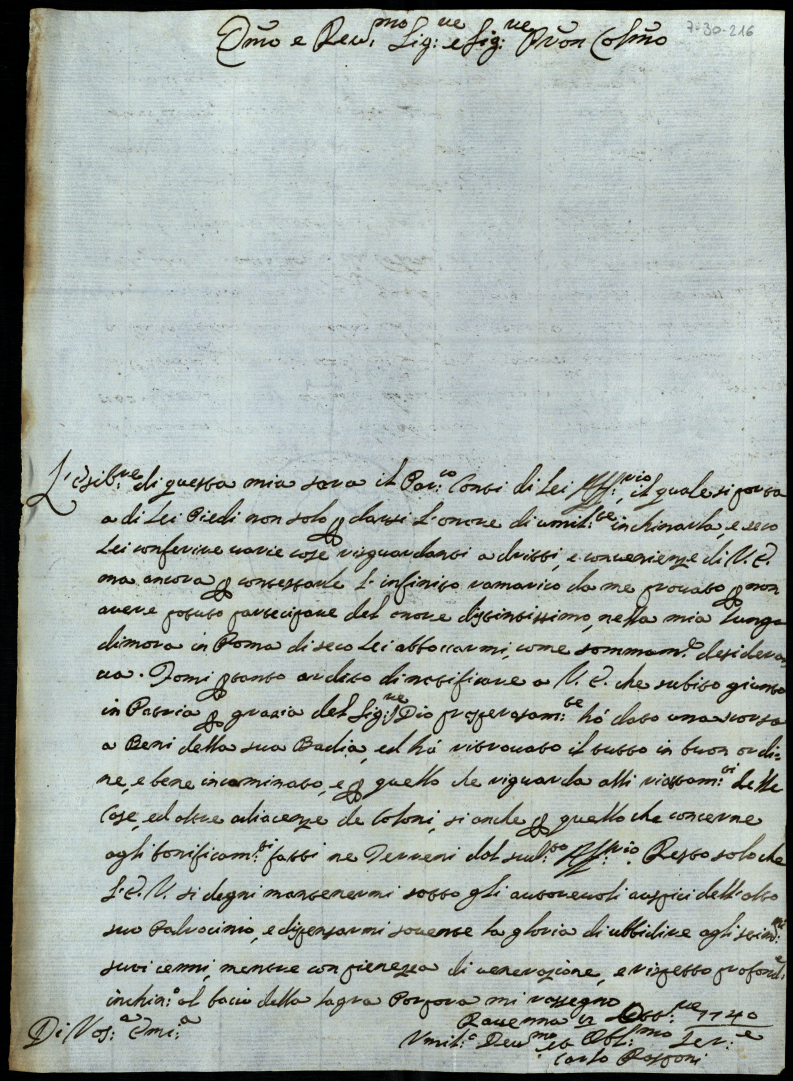 7-30-216
Em̃o e Rev.mo Sig:re e Sig:re P̃ron Col.m̃o
L'Esib:re di questa mia sarà il Par:co Conti di Lei Aff:rio, il quale si porta
a di Lei Piedi non solo ꝑ darsi l'onore di umil:te inchinarla, e seco
Lei conferire varie cose risguardanti a dritti, e convenienze di V. E.
ma ancora ꝑ contestarle l'infinito ramarico da me provato ꝑ non
avere potuto partecipare del onore distintissimo, nella mia lunga
dimora in Roma di seco Lei abboccarmi, come sommam:e desidera
va. Fomi ꝑtanto ardito di notificare a V. E. che subito giunto
in Patria ꝑ grazia del Sig:re Dio prosperosam:te hò dato una scorsa
a Beni della sua Badia, ed hò ritrovato il tutto in buon ordi=
ne, e bene incaminato, e ꝑ quello che riguarda alli riattam:ti delle
Case, ed altre adiacenze de Coloni, si anche ꝑ quello che concerne
agli bonificam:ti fatti ne Terreni dal sud:to Aff:rio. Resta solo che
L'E. V. si degni mantenermi sotto gli autorevoli auspici dell'alto
suo Patrocinio, e dispensarmi sovente la gloria di ubbidire agli stim:mi
suoi cenni, mentre con pienezza di venerazione, e rispetto profond:e
inchin:o al bacio della sagra Porpora mi rassegno
Ravenna 12 Ott:re 1740
Di Vos:a Emi:a
Umil:o Dev:mo et Obl:mo Ser:e
Carlo Rasponi